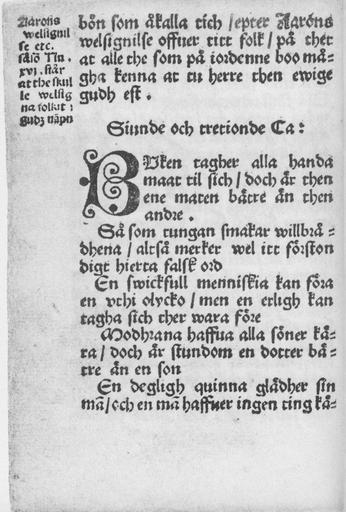 Aarons
welsignil
se etc.
såsō Nu.
xvi. står
at the skul
le welsig
na folkit i
gudz nāpn
bön som åkalla tich / epter Aaröns
welsignilse offuer titt folk / på thet
at alle the som på iordenne boo må=
gha kenna at tu herre then ewige
gudh est.
Siunde och tretionde Ca:
BUken tagher alla handa
maat til sich / doch är then
ene maten bätre än then
andre.
Så som tungan smakar willbrå=
dhena / altså merker wel itt förston
digt hierta falsk ord
En swickfull menniskia kan föra
en vthi olycko / men en erligh kan
tagha sich ther wara före
Modhrana haffua alla söner kä=
ra / doch är stundom en dotter bä=
tre än en son
En degligh quinna glädher sin
mā / och en mā haffuer ingen ting kä=